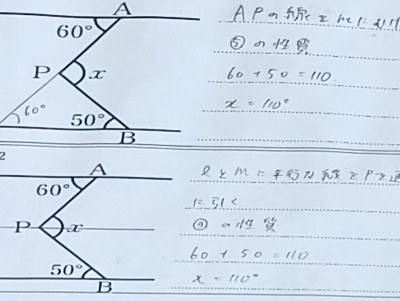 A
60°
P
x
60°
50°
B
APの線をmに
⑤の性質
60+50=110
x=110°
2
A
60°
P
x
50°
B
lとmに平行な線をPを通
に引く
の性質
60+50=110
x=110°